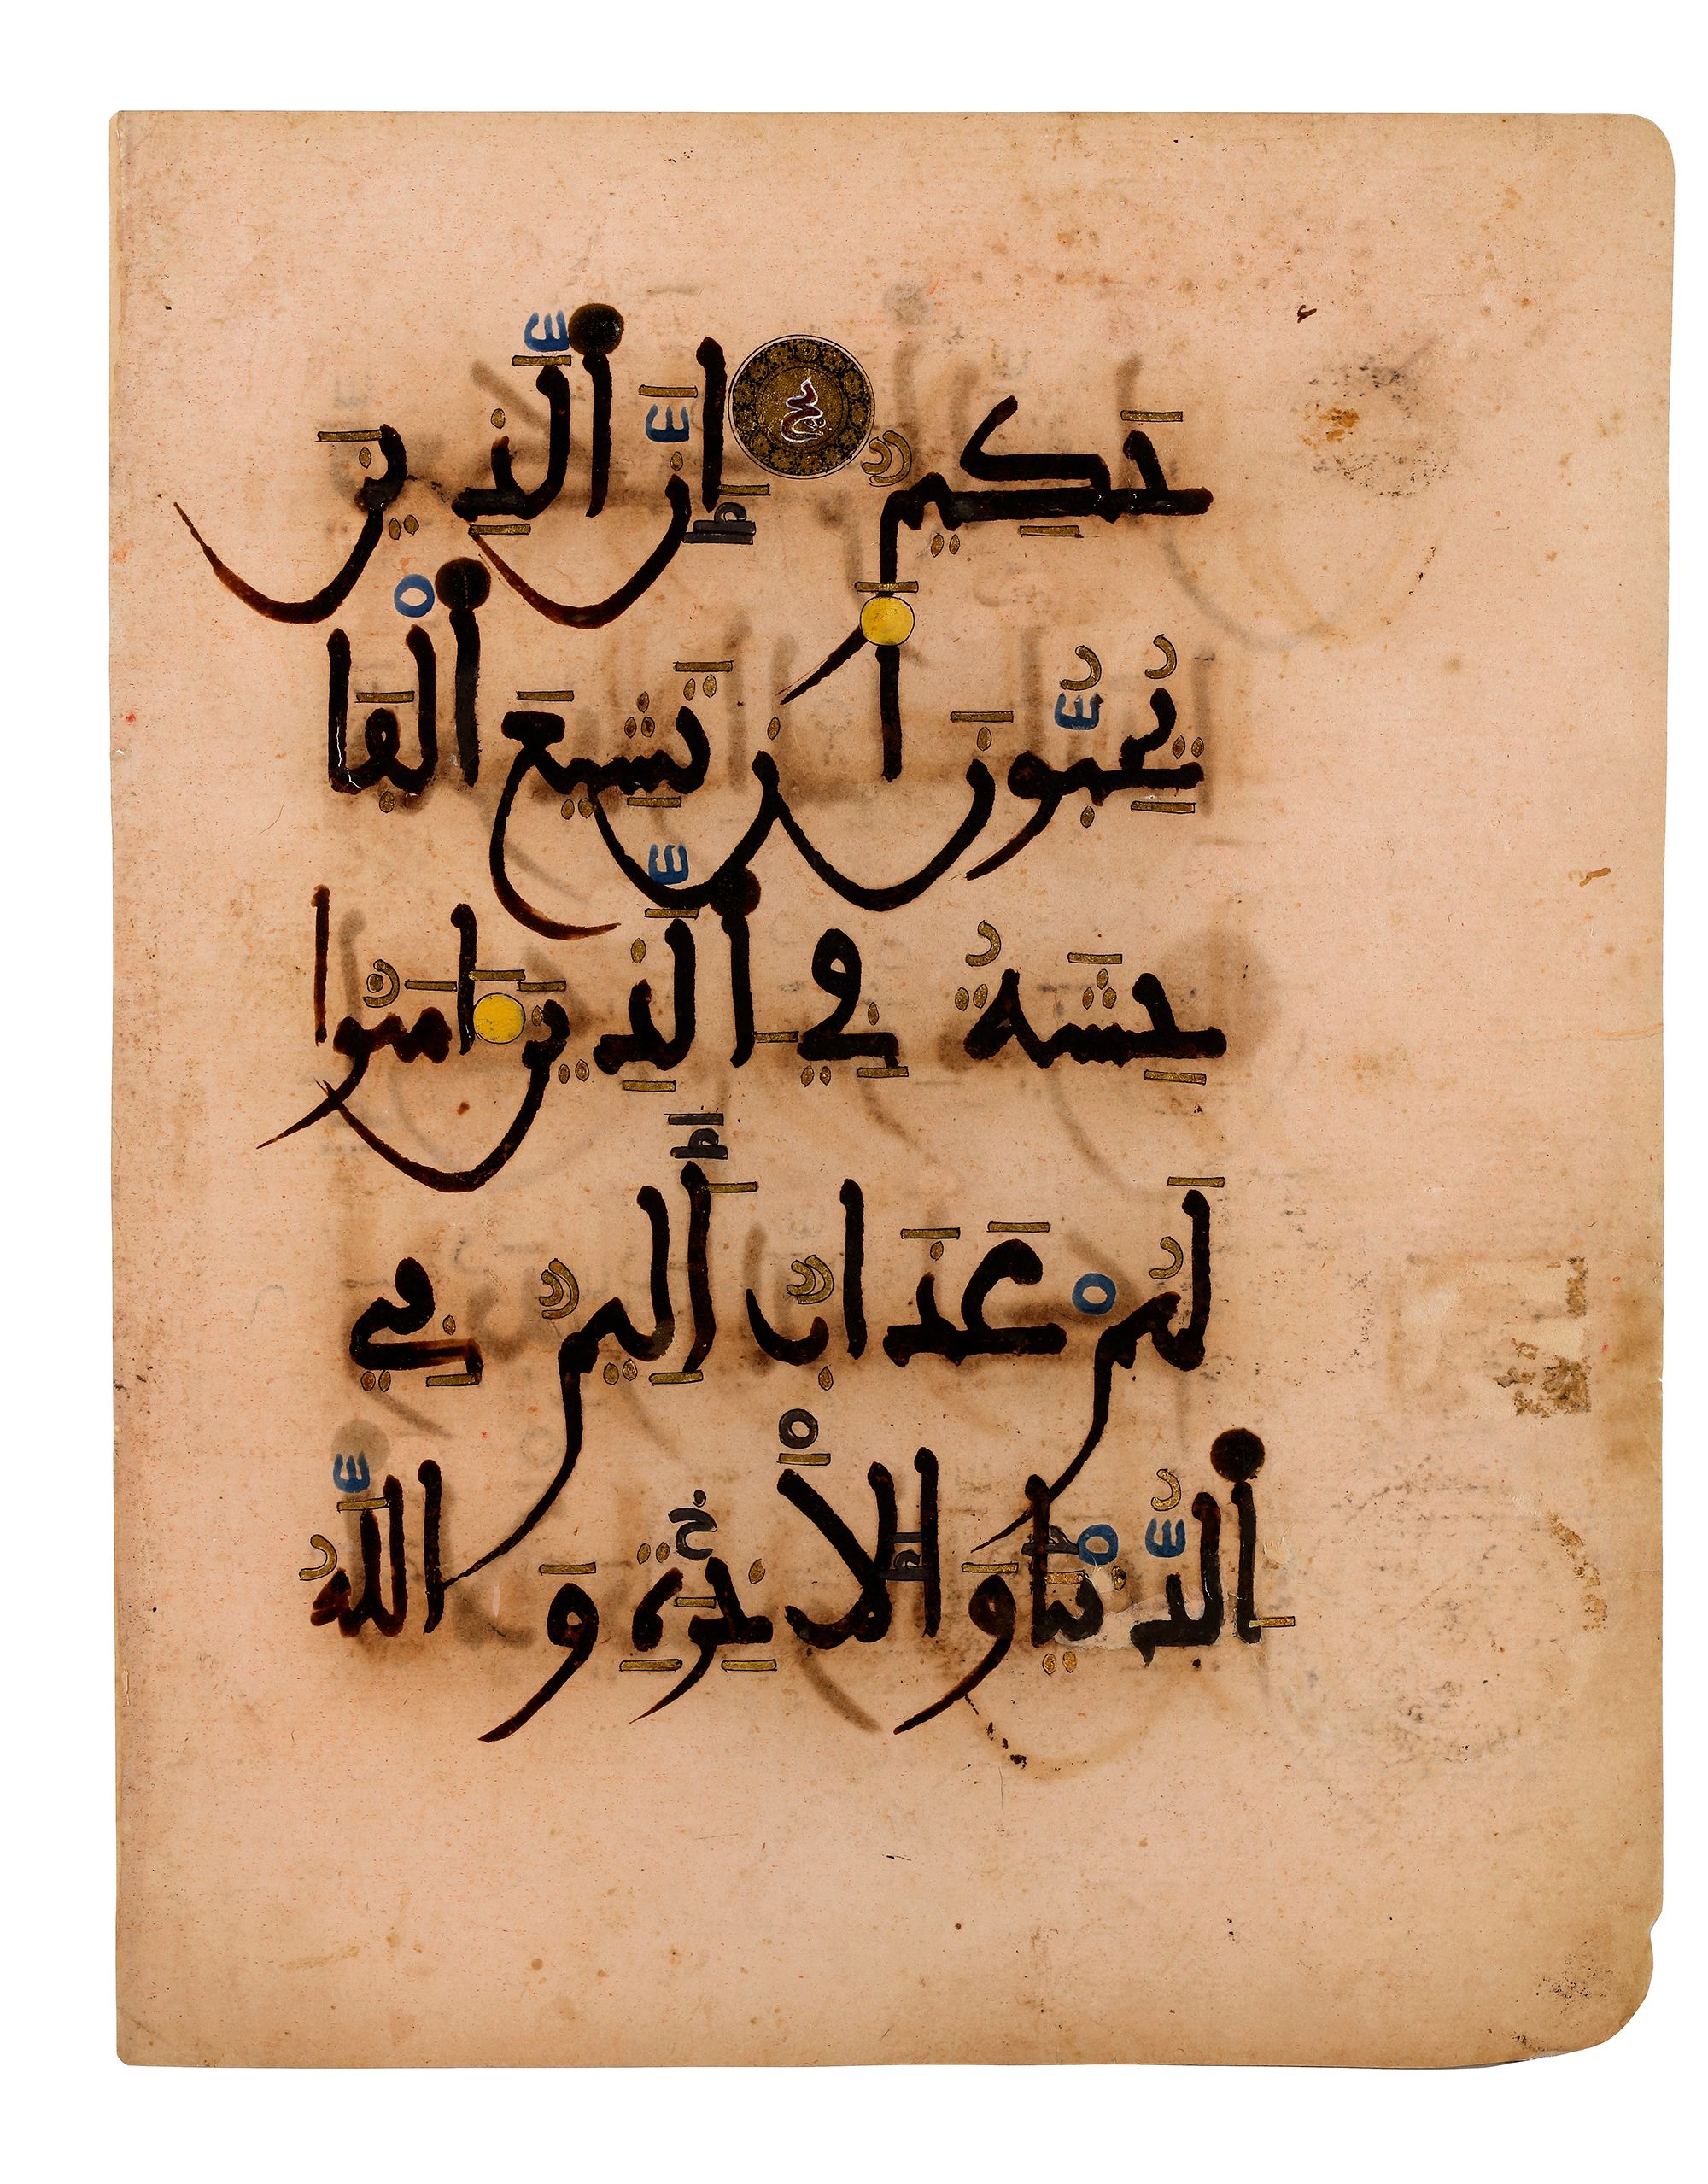 حَكِيمٌ إِنَّ الَّذِينَ
يُحِبُّونَ أَن تَشِيعَ الْفَا
حِشَةُ فِي الَّذِينَ ءَامَنُوا
لَهُمْ عَذَابٌ أَلِيمٌ فِي
الدُّنْيَا وَالْأَخِرَةِ وَاللَّهُ